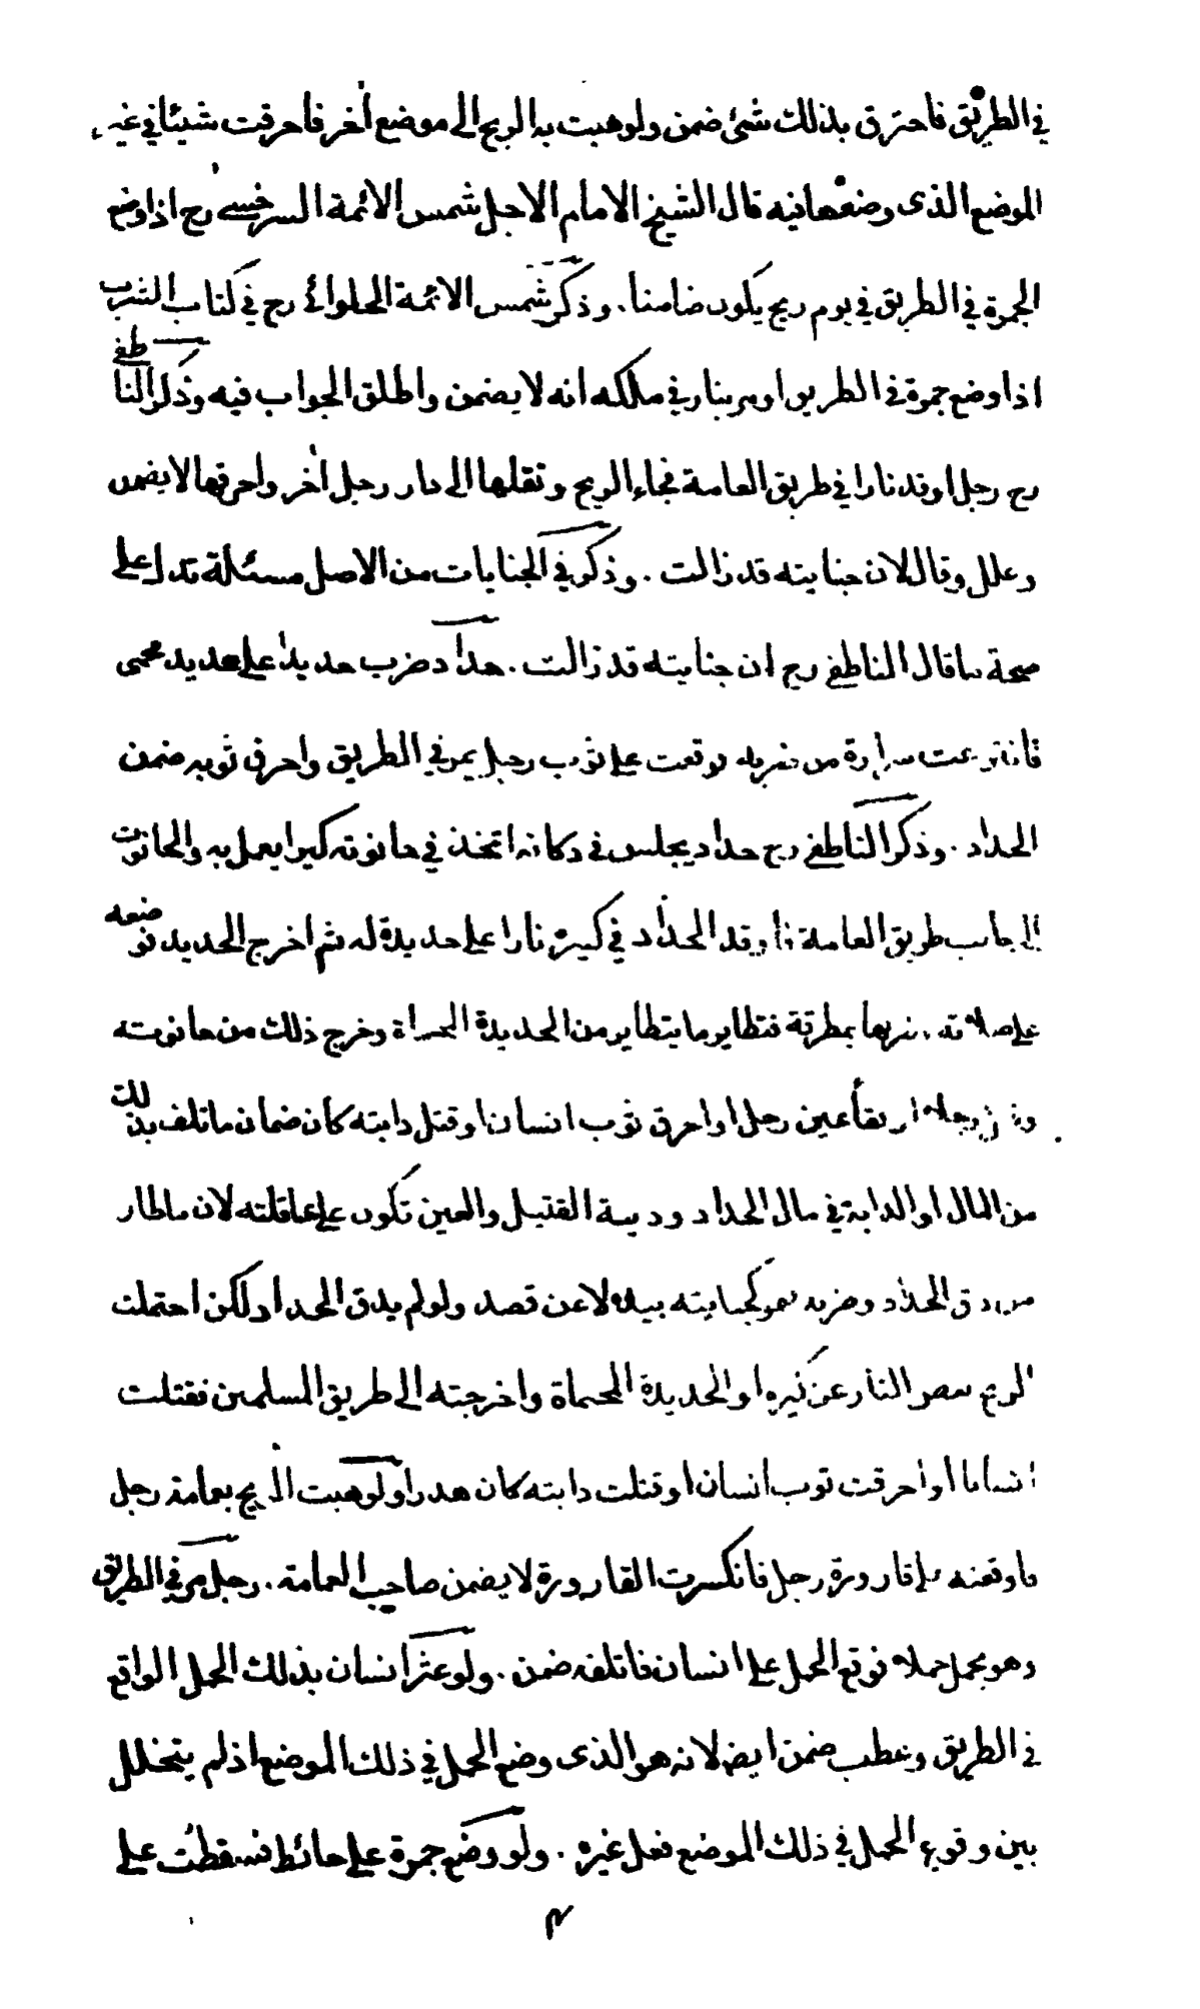 في الطريق فاحترق بذلك شئ ضمن ولو هبت به الريح الى موضع اٰخر فاحرقت شيئا في غير
الموضع الذى وضعها فيه قال الشيخ الامام الاجل شمس الائمة السرخسي رح اذا وضع
الجمرة في الطريق في يوم ريح يكون ضامنا. وذكر شمس الائمة الحلوائي رح في كتاب الشرب
اذا وضع جمرة في الطريق او مر بنار في ملكه انه لا يضمن واطلق الجواب فيه وذكر الناطفي
رح رجل اوقد نارا في طريق العامة فجاء الريح ونقلها الى دار رجل اٰخر واحرقها لا يضمن
وعلل وقال لان جنايته قد زالت. وذكر في الجنايات من الاصل مسئلة تدل على
صحة ما قال الناطفي رح ان جنايته قد زالت. حداد ضرب حديدا على حديد محمى
فانتزعت شرارة من ضربه فوقعت على ثوب رجل يمر في الطريق واحرق ثوبه ضمن
الحداد. وذكر الناطفي رح حداد يجلس في دكانه اتخذ في حانوته كيرا يعمل به والحانوت
الى جانب طريق العامة فاوقد الحداد في كيره نارا على حديدة له ثم اخرج الحديد فوضعه
على صلاته فضربها بمطرقة فتطاير ما يتطاير من الحديدة المحماة وخرج ذلك من حانوته
رجلا او فقأ عين رجل او احرق ثوب انسان او قتل دابته كان ضمان ما تلف بذلك
من المال او الدابة في مال الحداد ودية القتيل والعين تكون على عاقلته لان ما طار
من دق الحداد وضربه فهو كجنايته بيده لا عن قصد ولو لم يدق الحداد ولكن احتملت
الريح بعض النار عن كيره او الحديدة المحماة واخرجته الى طريق المسلمين فقتلت
انسانا او احرقت ثوب انسان او قتلت دابته كان هدرا ولو هبت الريح بعمامة رجل
فاوقعته على قارورة رجل فانكسرت القارورة لا يضمن صاحب العمامة. رجل مر في الطريق
وهو يحمل حملا فوقع الحمل على انسان فاتلفه ضمن. ولو عثر انسان بذلك الحمل الواقع
في الطريق وعطب ضمن ايضا لانه هو الذى وضع الحمل في ذلك الموضع اذ لم يتخلل
بين وقوع الحمل في ذلك الموضع فعل غيره. ولو وضع جمرة على حائط فسقطت على